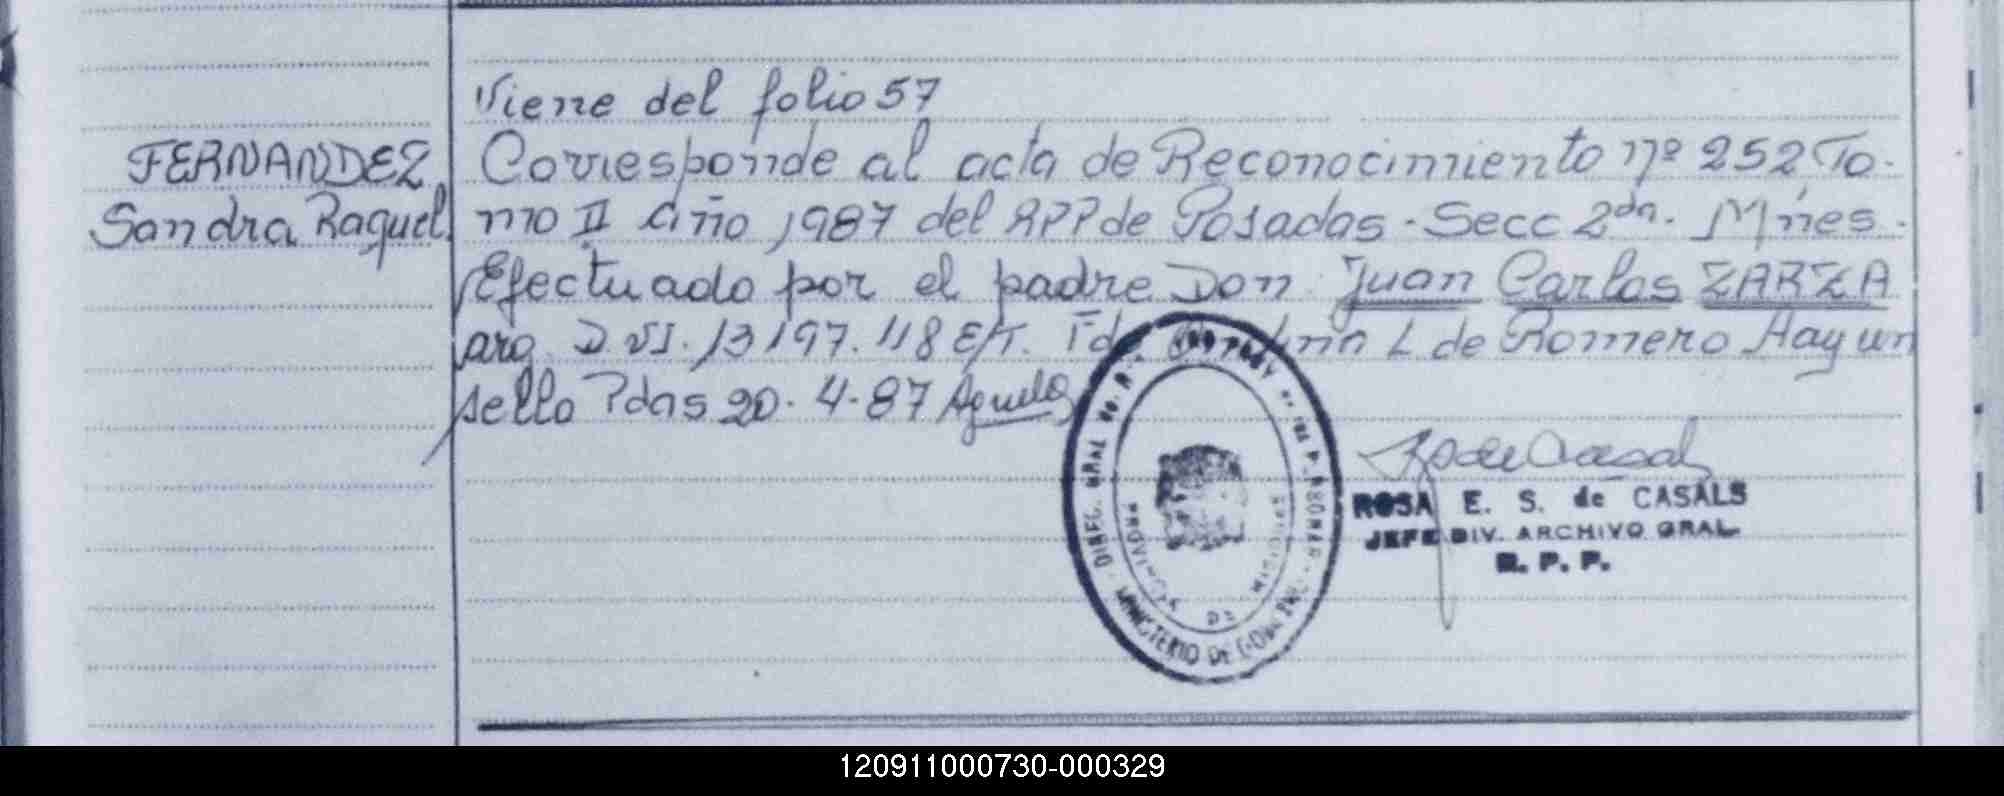 Viene del folio 57
FERNANDEZ Sandra Raquel
Corresponde al acta de Reconocimiento nº 252 To-
mo II año 1987 del RPP de Posadas - Secc 2da. Mnes.
Efectuado por el padre Don Juan Carlos ZARZA
arg. D.NI. 13197.118 E/T. Fdo L de Romero Hay un
sello Pdas 20-4-87
ROSA E. S. de CASALS
JEFE DIV. ARCHIVO GRAL.
R. P. P.
DIREC. GRAL
MINISTERIO DE
PROVINCIA DE
120911000730-000329